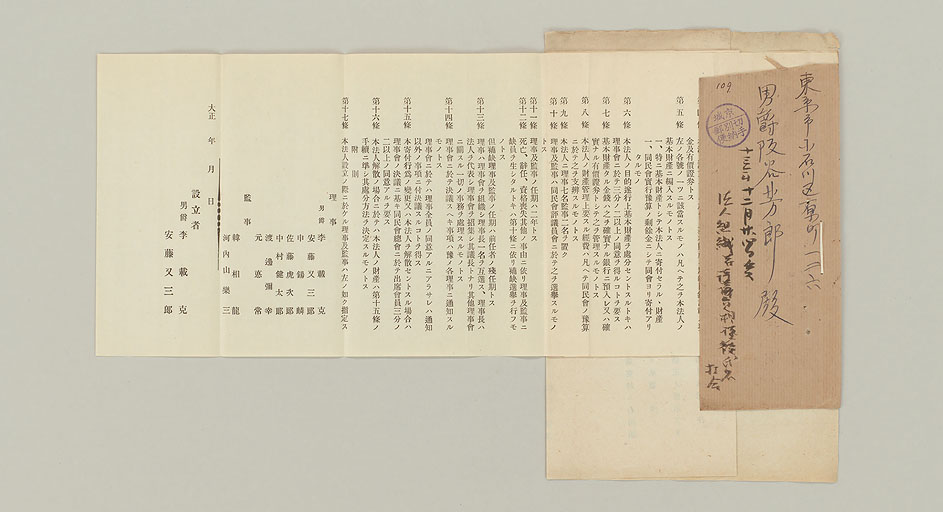 東京市小石川區原町一二六
男爵阪谷芳郎殿
109
十三年十二月廿
金及有價證券トス
第五條
左ノ各號ノ一ツニ該當スルモノハ凡ヘテ之ヲ本法人ノ
基本財產ニ編入スルモノトス
一、特ニ基本財產トシテ本法人ニ寄付セラル、財產
一、同民會實行豫算ノ剩餘金ニシテ同會ヨリ寄付アリ
タルモノ
第六條
本法人ノ目的遂行上基本財產ヲ處分セントスルトキハ
理事會ニ於テ三分ノ二以上ノ同意ヲ得ルコトヲ要ス
第七條
基本財產タル金錢ハ之ヲ確實ナル銀行ニ預入レ又ハ確
實ナル有價證券トシテ之ヲ管理スルモノトス
第八條
本法人ノ財產管理上要スル經費ハ凡ヘテ同民會ノ豫算
ニ於テ之ヲ支辨スルモノトス
第九條
本法人ニ理事七名監事二名ヲ置ク
第十條
理事及監事ハ同民會評議員會ニ於テ之ヲ選擧スルモノ
トス
第十一條
理事及監事ノ任期ハ二年トス
第十二條
死亡、辭任、資格喪失其他ノ事由ニ依リ理事及監事ニ
缺員ヲ生シタルトキハ第十條ニ依リ補缺選擧ヲ行フモ
ノトス
但補缺理事及監事ノ任期ハ前任者ノ殘任期トス
第十三條
理事ハ理事會ヲ組織シ理事長一名ヲ互選ス、理事長ハ
法人ヲ代表シ理事會ヲ招集シ其議長トナリ其他理事會
ニ關スル一切ノ事務ヲ處理スルモノトス
第十四條
理事會ニ於テ決議スヘキ事項ハ豫メ各理事ニ通知スル
モノトス
理事會ニ於テハ理事全員ノ同意アルニアラサレハ通知
以外ノ事項ニ付決議スルコトヲ得ス
第十五條
本寄付行爲ノ變更又ハ本法人ヲ解散セントスル場合ハ
理事會ノ決議ニ基キ同民會總會ニ於テ出席會員三分ノ
二以上ノ同意アルヲ要ス
第十六條
本法人解散ノ場合ニ於テハ本法人ノ財產ハ第十五條ノ
手續ニ準シ其處分方法ヲ決定スルモノトス
附則
第十七條
本法人設立ノ際ニ於ケル理事及監事ハ左ノ如ク指定ス
理事
男爵 李載克
安藤又三郎
申錫麟
佐藤虎次郎
中村健太郎
渡邊彌幸
元悳常
監事
韓相龍
河內山樂三
大正 年 月 日
設立者
男爵 李載克
安藤又三郎